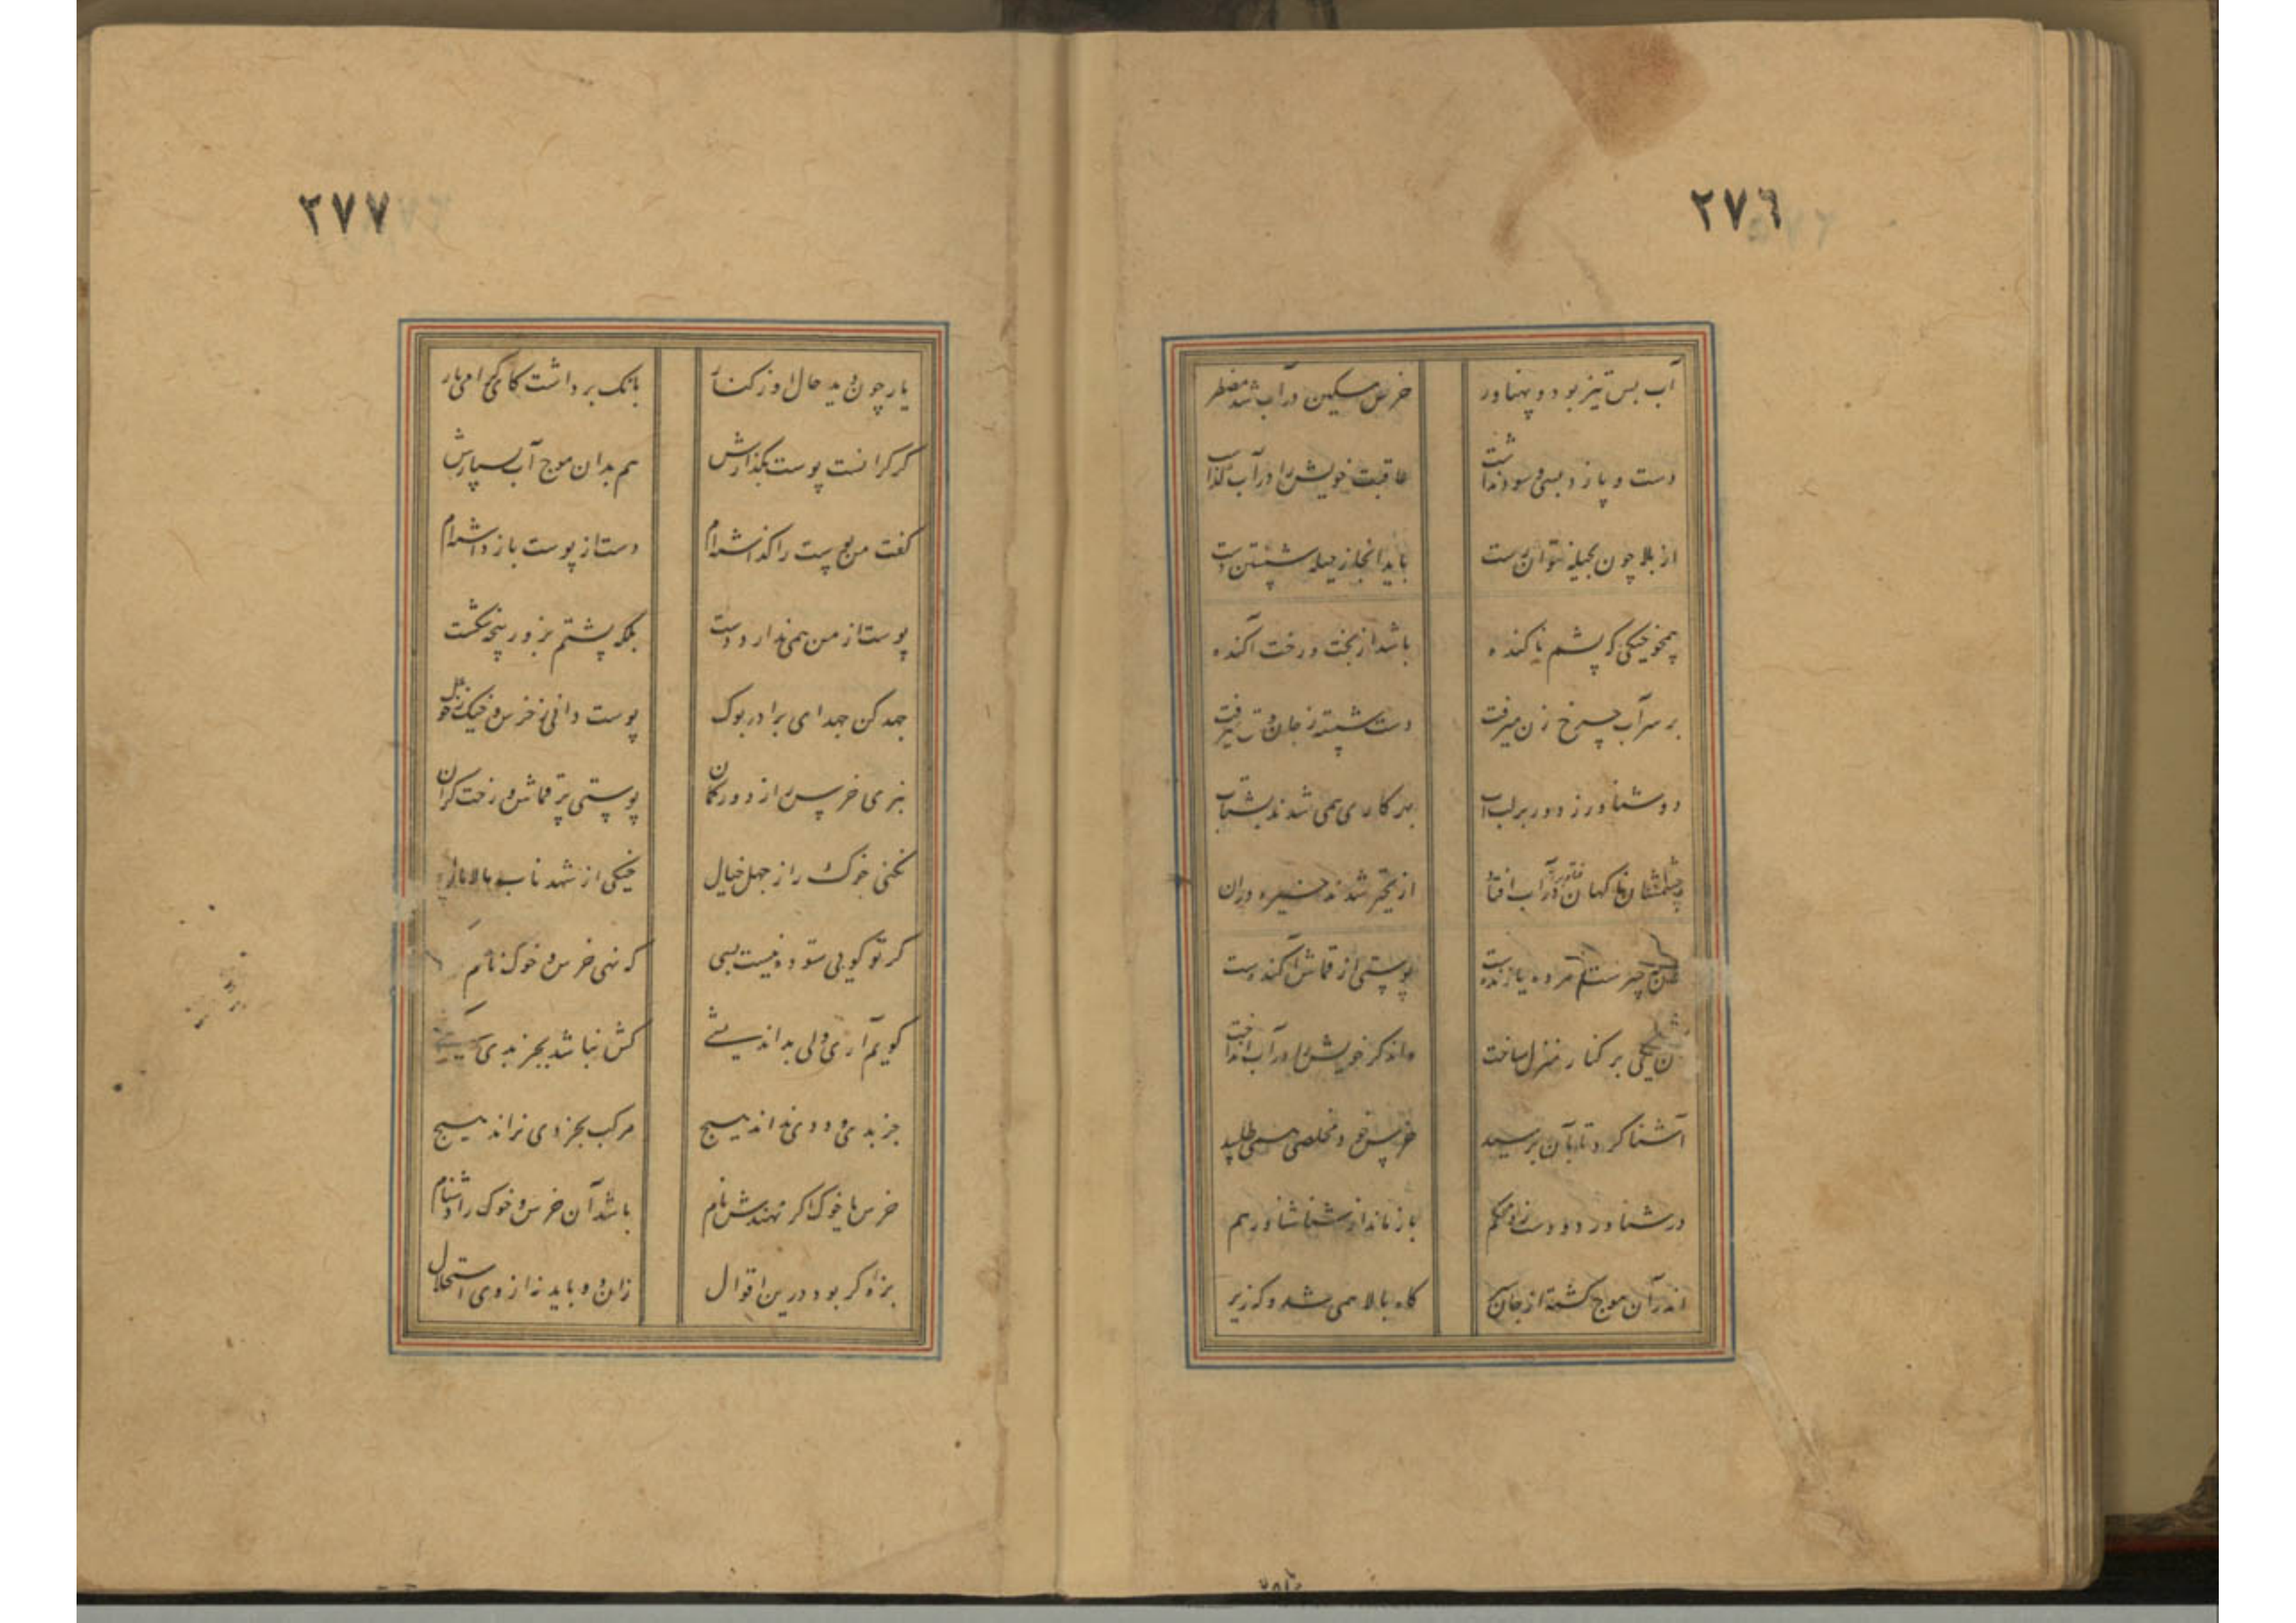 ٢٧٦
آب بس تیز بود و پهناور خرس مسکین در آب شد مضطر
دست و پا زد بسی و سود نداشت عاقبت خویش را در آب گذاشت
از بلا چون بحیله نتوان رست باید آنجا ز حیله شستن دست
همچو خیکی که پشم ناکنده باشد از پخت و رخت آکنده
بر سر آب چرخ زن میرفت دست شسته ز جان و تن میرفت
دو شناور ز دور بر لب آب بهر کاری همی شدند شتاب
چشمشان ناگهان فتاد بر آن از تحیر شدند خیره در آن
چیست مرده یا زنده است پوستی از قماش آکنده است
آن یکی بر کنار منزل ساخت واندگر خویش را در آب انداخت
آشنا کرد تا بآن برسید خرس خود مخلصی همی طلبید
در شناور دو دست زد محکم باز ماند از شنا شناور هم
اندر آن موج گشته از جان سیر گاه بالا همی شد و گه زیر
٢٧٧
یار چون دید حال او ز کنار بانک برداشت کای گرامی یار
گر گرانست پوست بگذارش هم بدان موج آب بسپارش
گفت من پوست را گذاشته‌ام دست از پوست باز داشته‌ام
پوست از من همی ندارد دست بلکه پشتم بزور پنجه شکست
جهد کن جهد ای برادر بوک پوست دانی ز خرس و خیک ز خوک
نبری خرس را ز دور گمان پوستی پر قماش و رخت گران
نکنی خوک را ز جهل خیال خیکی از شهد ناب مالامال
گر تو گویی ستوده نیست بسی که نهی خرس و خوک نام کسی
گویم آری ولی بداندیشی کش نباشد بجز بدی کیشی
جز بدی و ددی نداند هیچ مرکب بجز دی نراند هیچ
خرس یا خوک اگر نهندش نام باشد آن خرس و خوک را دشنام
بزه گر بود درین اقوال زان و باید نه از وی استحلال